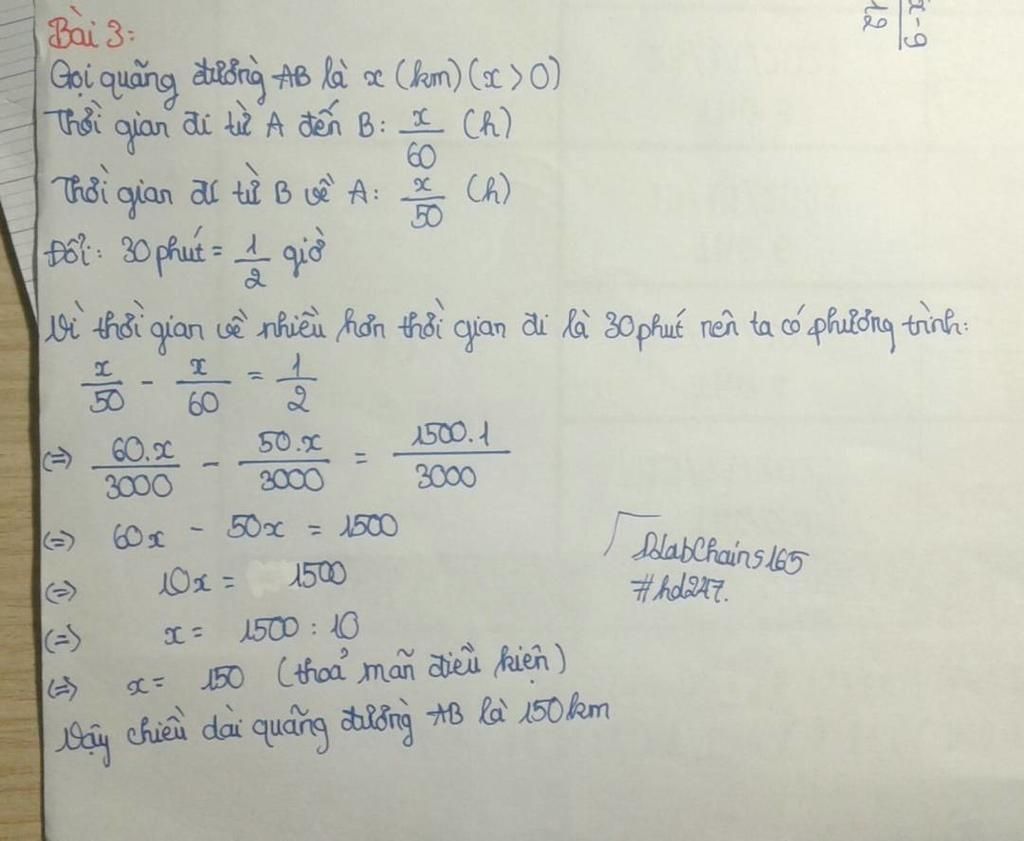 Bài 3:
Gọi quãng đường AB là x (km) (x > 0)
Thời gian đi từ A đến B: x/60 (h)
Thời gian đi từ B về A: x/50 (h)
Đổi: 30 phút = 1/2 giờ
Vì thời gian về nhiều hơn thời gian đi là 30 phút nên ta có phương trình:
x/50 - x/60 = 1/2
(=) 60.x/3000 - 50.x/3000 = 1500.1/3000
(=) 60x - 50x = 1500
(=) 10x = 1500
(=) x = 1500 : 10
(=) x = 150 (thoả mãn điều kiện)
Vậy chiều dài quãng đường AB là 150km
#hd247.
x-9/12